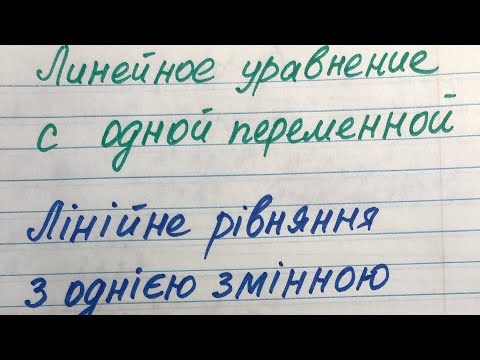 Линейное уравнение
с одной переменной
Лінійне рівняння
з однією змінною